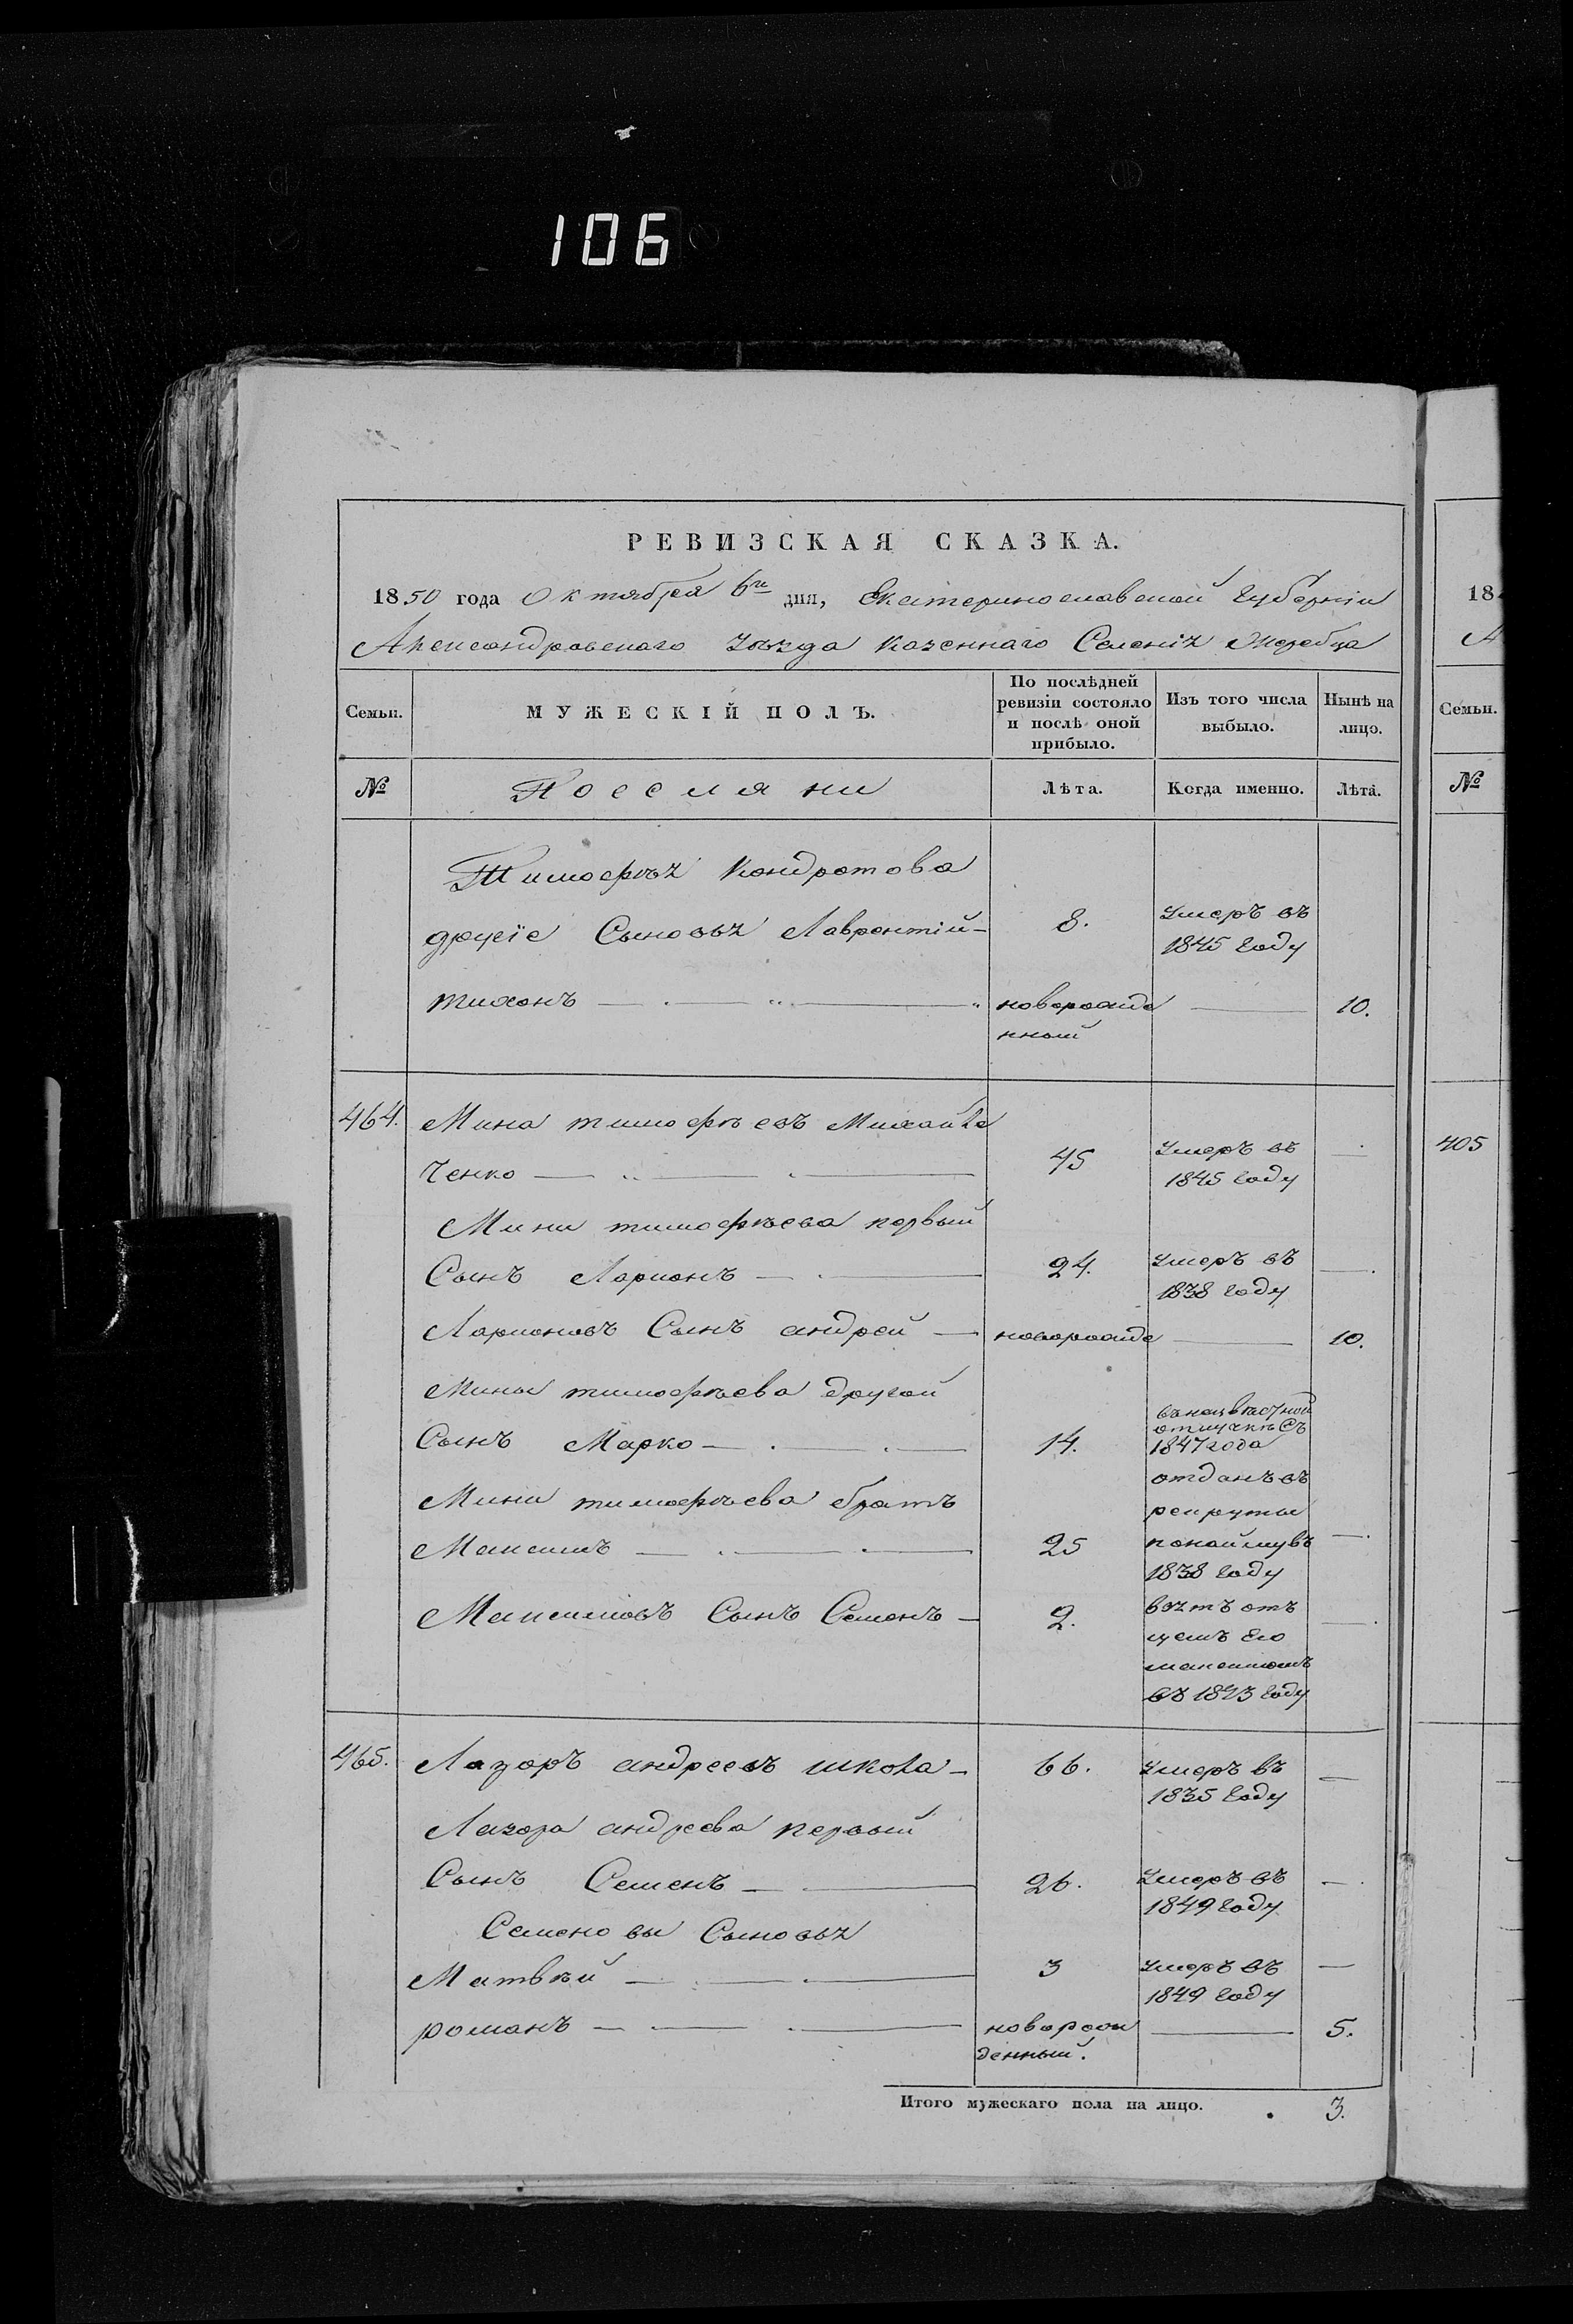 106
РЕВИЗСКАЯ СКАЗКА.
1850 года Октября 6го дня, Екатеринославской Губерніи
Александровскаго Уѣзда казеннаго Селенія Жеребца
Семьи. МУЖЕСКІЙ ПОЛЪ. По послѣдней ревизіи состояло и послѣ оной прибыло. Изъ того числа выбыло. Нынѣ на лицо.
№ Поселяни Лѣта. Когда именно. Лѣта.
Тимофѣя Кондротова
другіе Сыновья Лаврентій 8. Умеръ въ 1845 году
тихонъ новорожде нный 10.
464. Мина тимофѣевъ Михайли
ченко 45 Умеръ въ 1845 году
Мини тимофѣева первый
Сынъ Ларионъ 24. Умеръ въ 1838 году
Ларионовъ Сынъ андрей новорожде 10.
Мины тимофѣева другой
Сынъ Марко 14. въ неизвѣстной отлучкѣ Съ 1847 года
Мини тимофѣева братъ
Максимъ 25 отданъ въ рекруты по найму въ 1838 году
Максимовъ Сынъ Семенъ 2. взятъ отъ цемъ Его максимомъ въ 1843 году
465. Лазоръ андреевъ школа 66. Умеръ въ 1835 году
Лазора андреева первый
Сынъ Семенъ 26. Умеръ въ 1849 году
Семеновы Сыновья
Матвѣй 3 Умеръ въ 1849 году
романъ новорож денный. 5.
Итого мужескаго пола на лицо. 3.
18
А
Семьи.
№
405